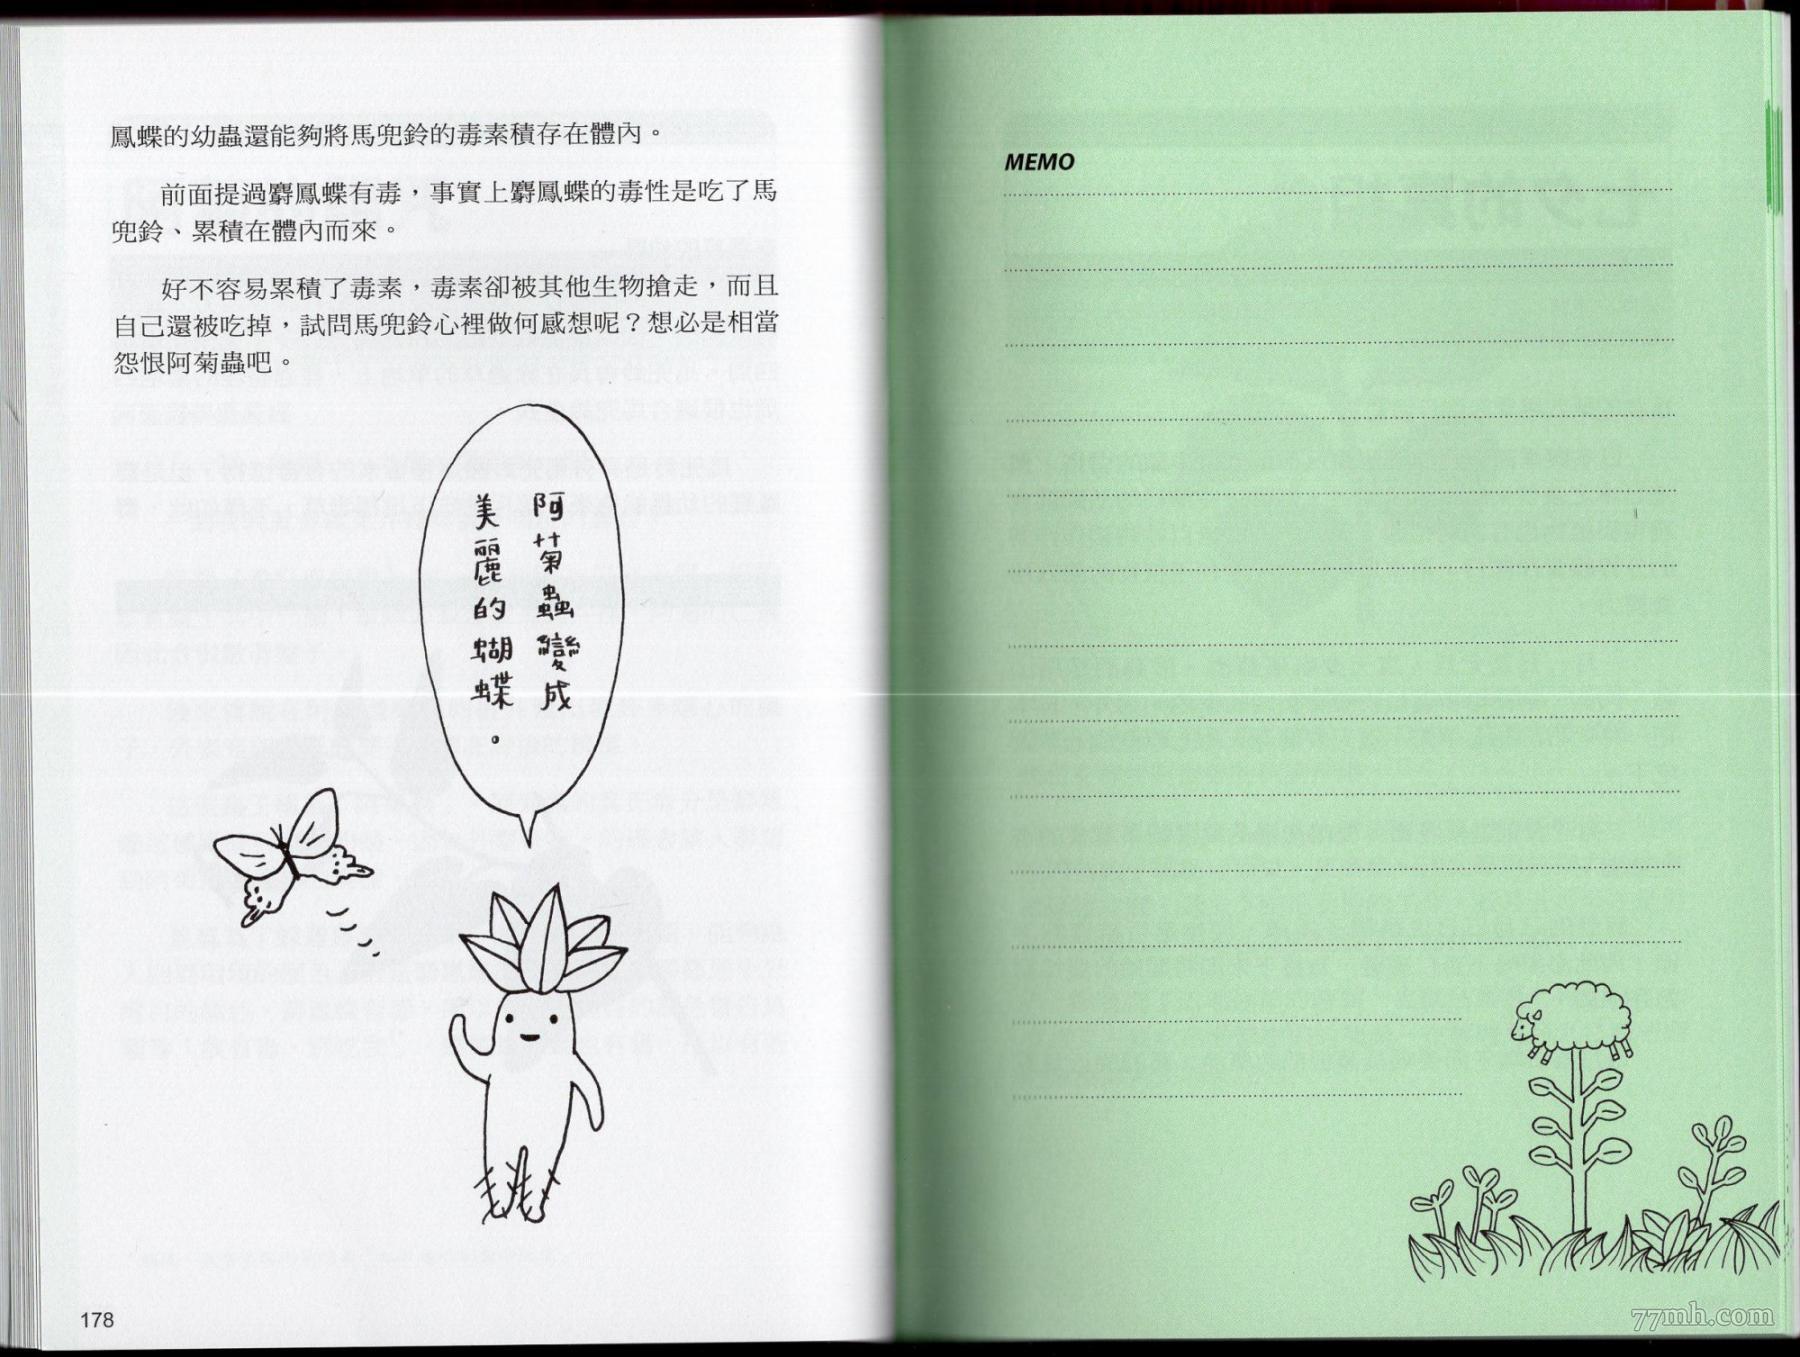 鳳蝶的幼蟲還能夠將馬兜鈴的毒素積存在體內。
前面提過麝鳳蝶有毒，事實上麝鳳蝶的毒性是吃了馬
兜鈴、累積在體內而來。
好不容易累積了毒素，毒素卻被其他生物搶走，而且
自己還被吃掉，試問馬兜鈴心裡做何感想呢？想必是相當
怨恨阿菊蟲吧。
阿菊蟲變成
美麗的蝴蝶。
178
MEMO
77mh.com